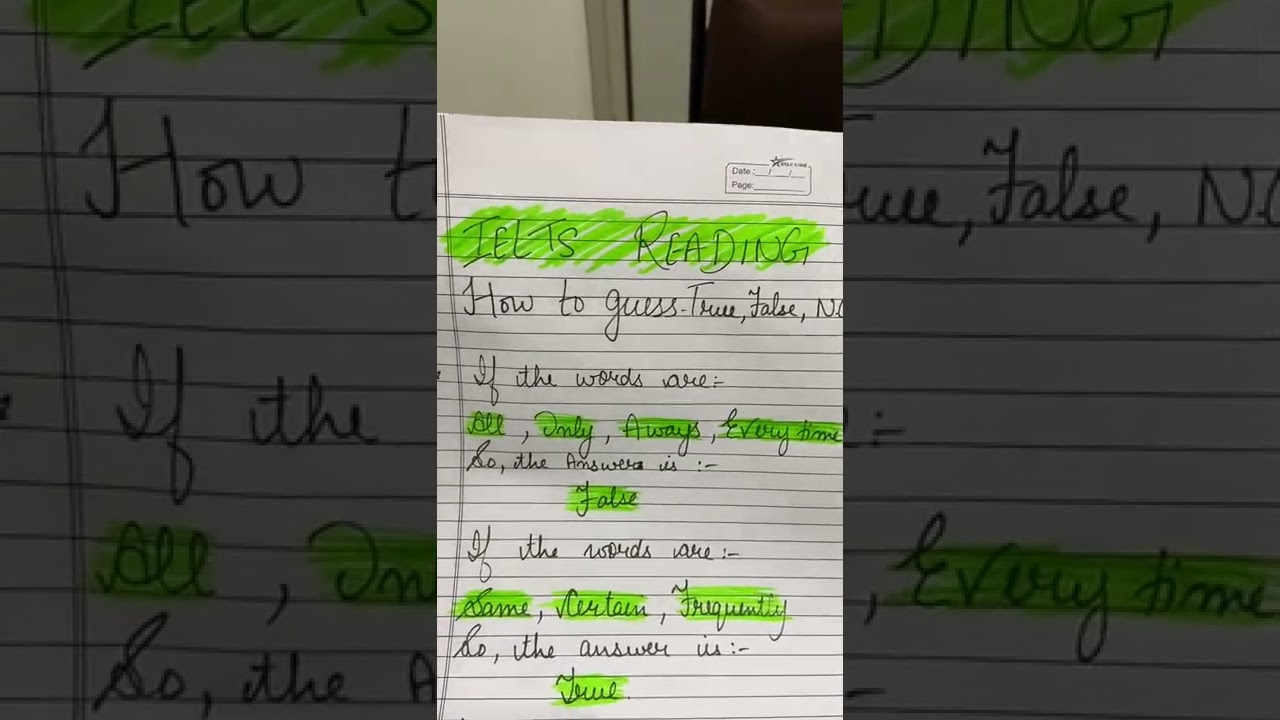 Date:__/__/__
Page:______
IELTS READING
How to guess-True, False, N.G
If the words are:-
All, Only, Aways, Every time
So, the Answer is :-
False
If the words are:-
Same, Certain, Frequently
So, the answer is:-
True.